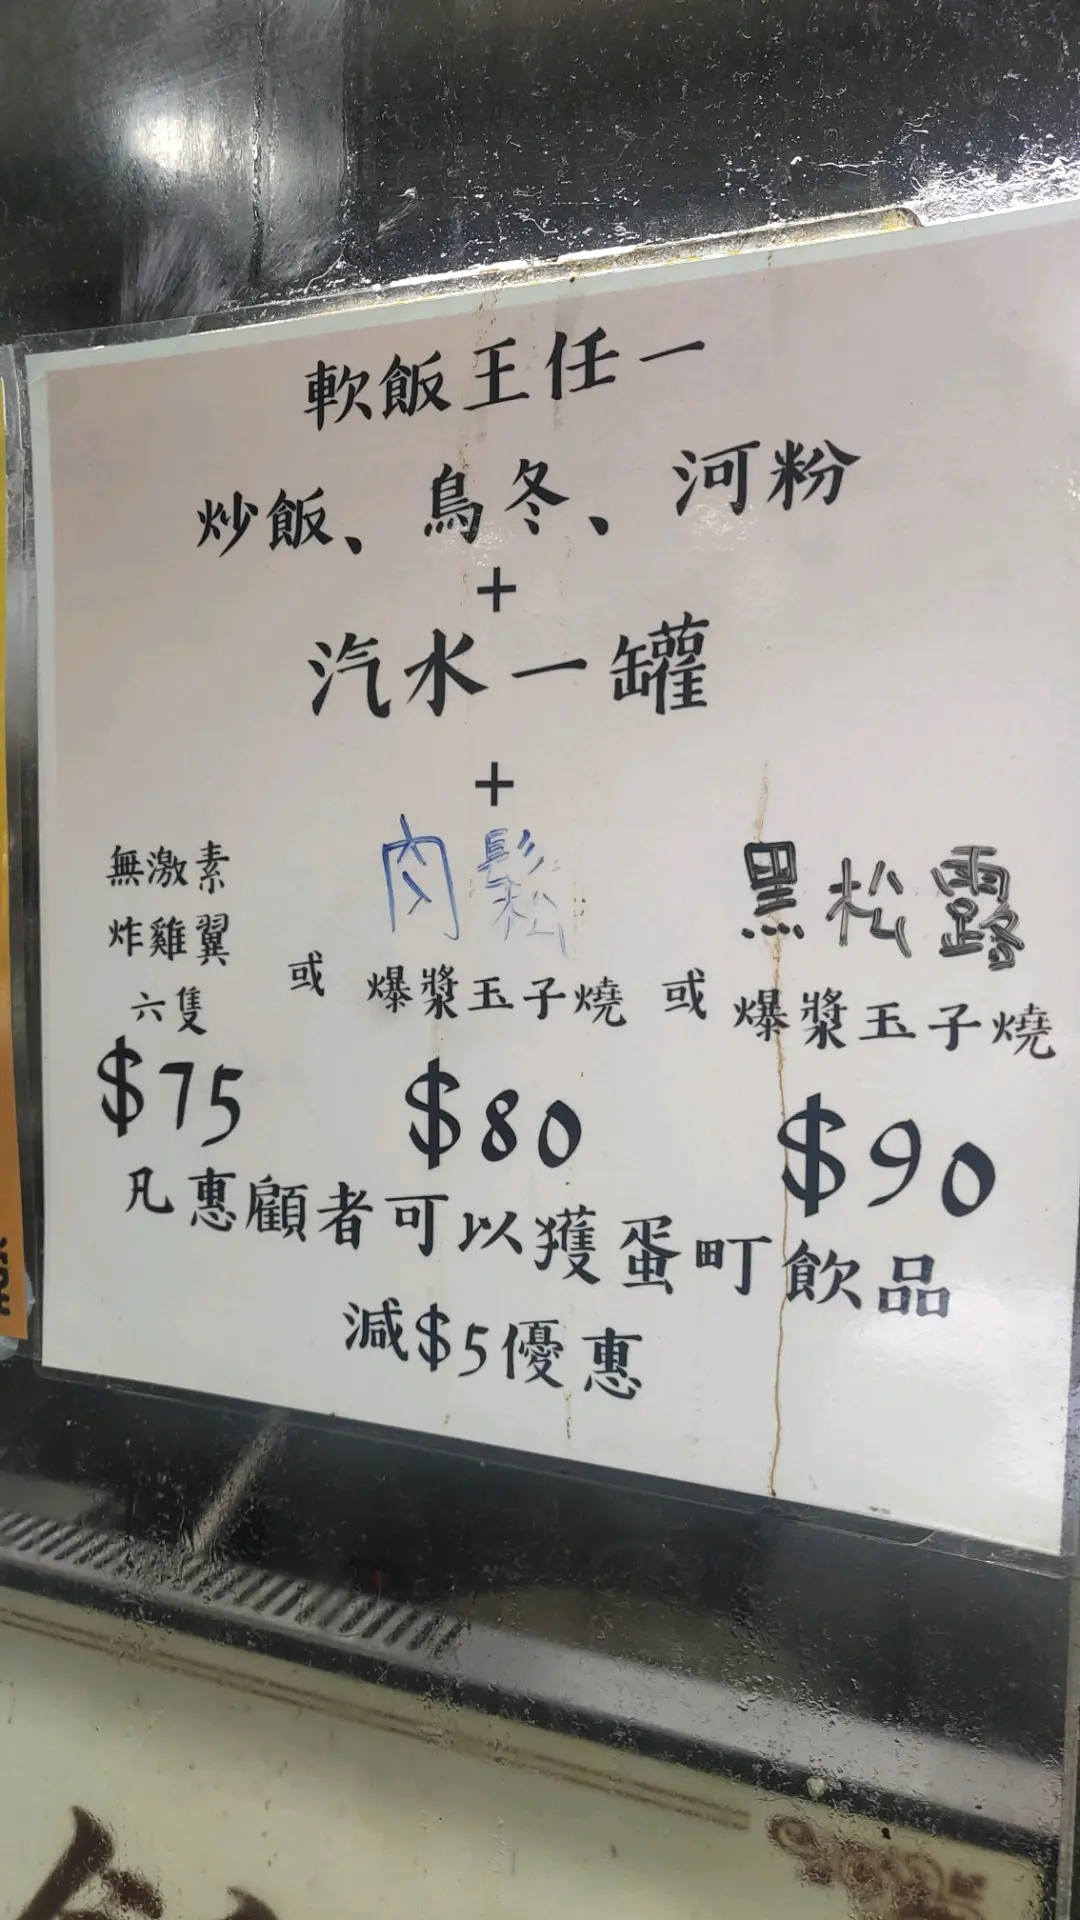 軟飯王任一
炒飯、鳥冬、河粉
+
汽水一罐
+
無激素
炸雞翼
六隻
$75
或
肉鬆
爆漿玉子燒
$80
或
黑松露
爆漿玉子燒
$90
凡惠顧者可以獲蛋町飲品
減$5優惠